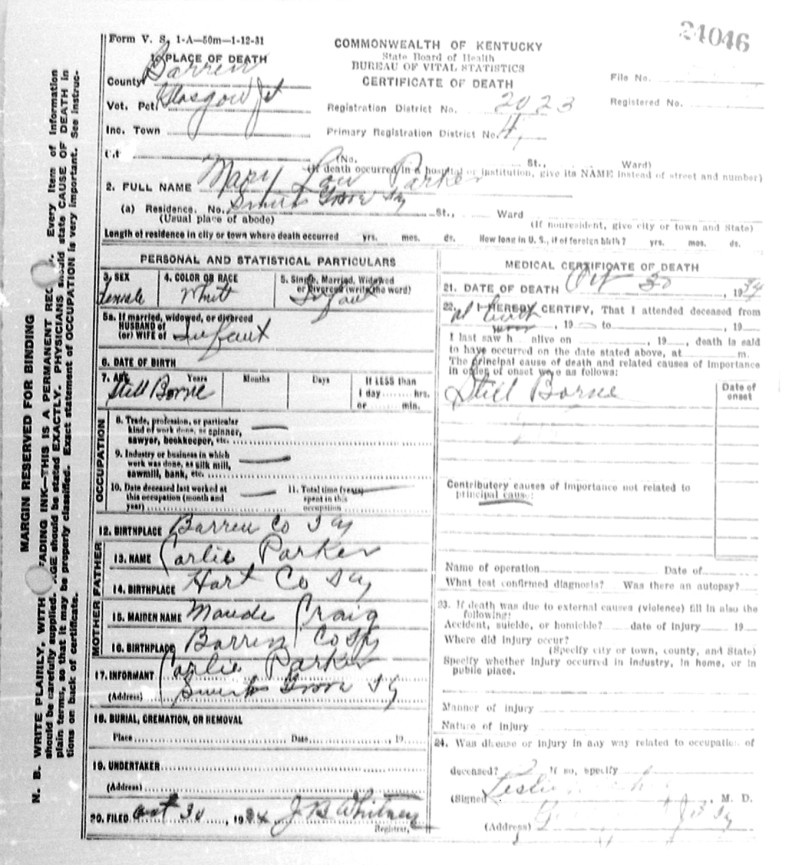 24046
Form V. S. 1-A—50m—1-12-31
COMMONWEALTH OF KENTUCKY
State Board of Health
BUREAU OF VITAL STATISTICS
CERTIFICATE OF DEATH
1. PLACE OF DEATH
County Barren
File No.
Vot. Pct. Glasgow Jct
Registration District No. 2023
Registered No.
Inc. Town
Primary Registration District No.
(No. St., Ward)
(If death occurred in a hospital or institution, give its NAME instead of street and number)
2. FULL NAME Mary Lou Parker
(a) Residence. No. Smiths Grove Ky St., Ward
(Usual place of abode)
(If nonresident, give city or town and State)
Length of residence in city or town where death occurred yrs. mos. ds. How long in U. S., if of foreign birth? yrs. mos. ds.
PERSONAL AND STATISTICAL PARTICULARS
3. SEX
Female
4. COLOR OR RACE
White
5. Single, Married, Widowed
or Divorced (write the word)
Infant
5a. If married, widowed, or divorced
HUSBAND of
(or) WIFE of Infant
6. DATE OF BIRTH
7. AGE Years Months Days If LESS than
1 day hrs.
or min.
Still Borne
OCCUPATION
8. Trade, profession, or particular
kind of work done, as spinner,
sawyer, bookkeeper, etc.
9. Industry or business in which
work was done, as silk mill,
sawmill, bank, etc.
10. Date deceased last worked at
this occupation (month and
year)
11. Total time (years)
spent in this
occupation
12. BIRTHPLACE Barren Co Ky
FATHER
13. NAME Carlie Parker
14. BIRTHPLACE Hart Co Ky
MOTHER
15. MAIDEN NAME Maude Craig
16. BIRTHPLACE Barren Co Ky
17. INFORMANT Carlie Parker
(Address) Smiths Grove Ky
18. BURIAL, CREMATION, OR REMOVAL
Place Date , 19
19. UNDERTAKER
(Address)
20. FILED Oct 30, 1934 J B Whitney
Registrar.
MEDICAL CERTIFICATE OF DEATH
21. DATE OF DEATH Oct 30, 1934
22. I HEREBY CERTIFY, That I attended deceased from
at birth , 19 to , 19
I last saw h alive on , 19 , death is said
to have occurred on the date stated above, at m.
The principal cause of death and related causes of importance
in order of onset were as follows:
Date of
onset
Still Borne
Contributory causes of importance not related to
principal cause:
Name of operation Date of
What test confirmed diagnosis? Was there an autopsy?
23. If death was due to external causes (violence) fill in also the
following:
Accident, suicide, or homicide? date of injury 19
Where did injury occur?
(Specify city or town, county, and State)
Specify whether injury occurred in industry, in home, or in
public place.
Manner of injury
Nature of injury
24. Was disease or injury in any way related to occupation of
deceased? If so, specify
(Signed Leslie M. D.
(Address)
MARGIN RESERVED FOR BINDING
N. B. WRITE PLAINLY, WITH FADING INK—THIS IS A PERMANENT REC. Every item of information
should be carefully supplied. AGE should be stated EXACTLY. PHYSICIANS should state CAUSE OF DEATH in
plain terms, so that it may be properly classified. Exact statement of OCCUPATION is very important. See instruc-
tions on back of certificate.